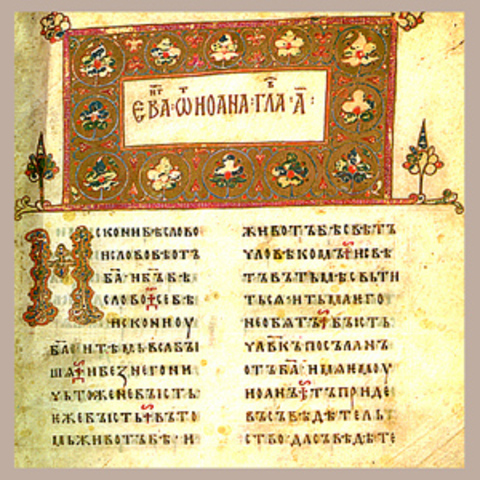 ЕВА·Ѿ ИОАНА·ГЛА·А҃:
ИСКОНИБѢСЛОВО
ИСЛОВОБѢОТЪ
БА҃·ИБ҃ЪБѢ
СЛОВО·СЕБѢ
ИСКОНИОУ
БА҃·ИТѢМЬВСАБЫ
ШѦ·ИБЕЗНЕГОНИ
ЧЬТОЖЕНЕБЫСТЬ·
ЕЖЕБЫСТЬ·ВЪТО
МЬЖИВОТЪБѢ·И
ЖИВОТЪБѢСВѢТЪ
ЧЛОВѢКОМЪ·ИСВѢ
ТЪВЪТЬМѢСВЬТИ
ТЬСѦ·ИТЬМАѤГО
НЕОБЯТЪ·БЫСТЬ
ЧЛВ҃КЪПОСЪЛАНЪ
ОТЪБА҃·ИМѦѤМОУ
ИОАНЪ·ТЪПРИДЕ
ВЪСЪВѢДѢТЕЛЬ
СТВО·ДАСЪВѢДѢТЕ